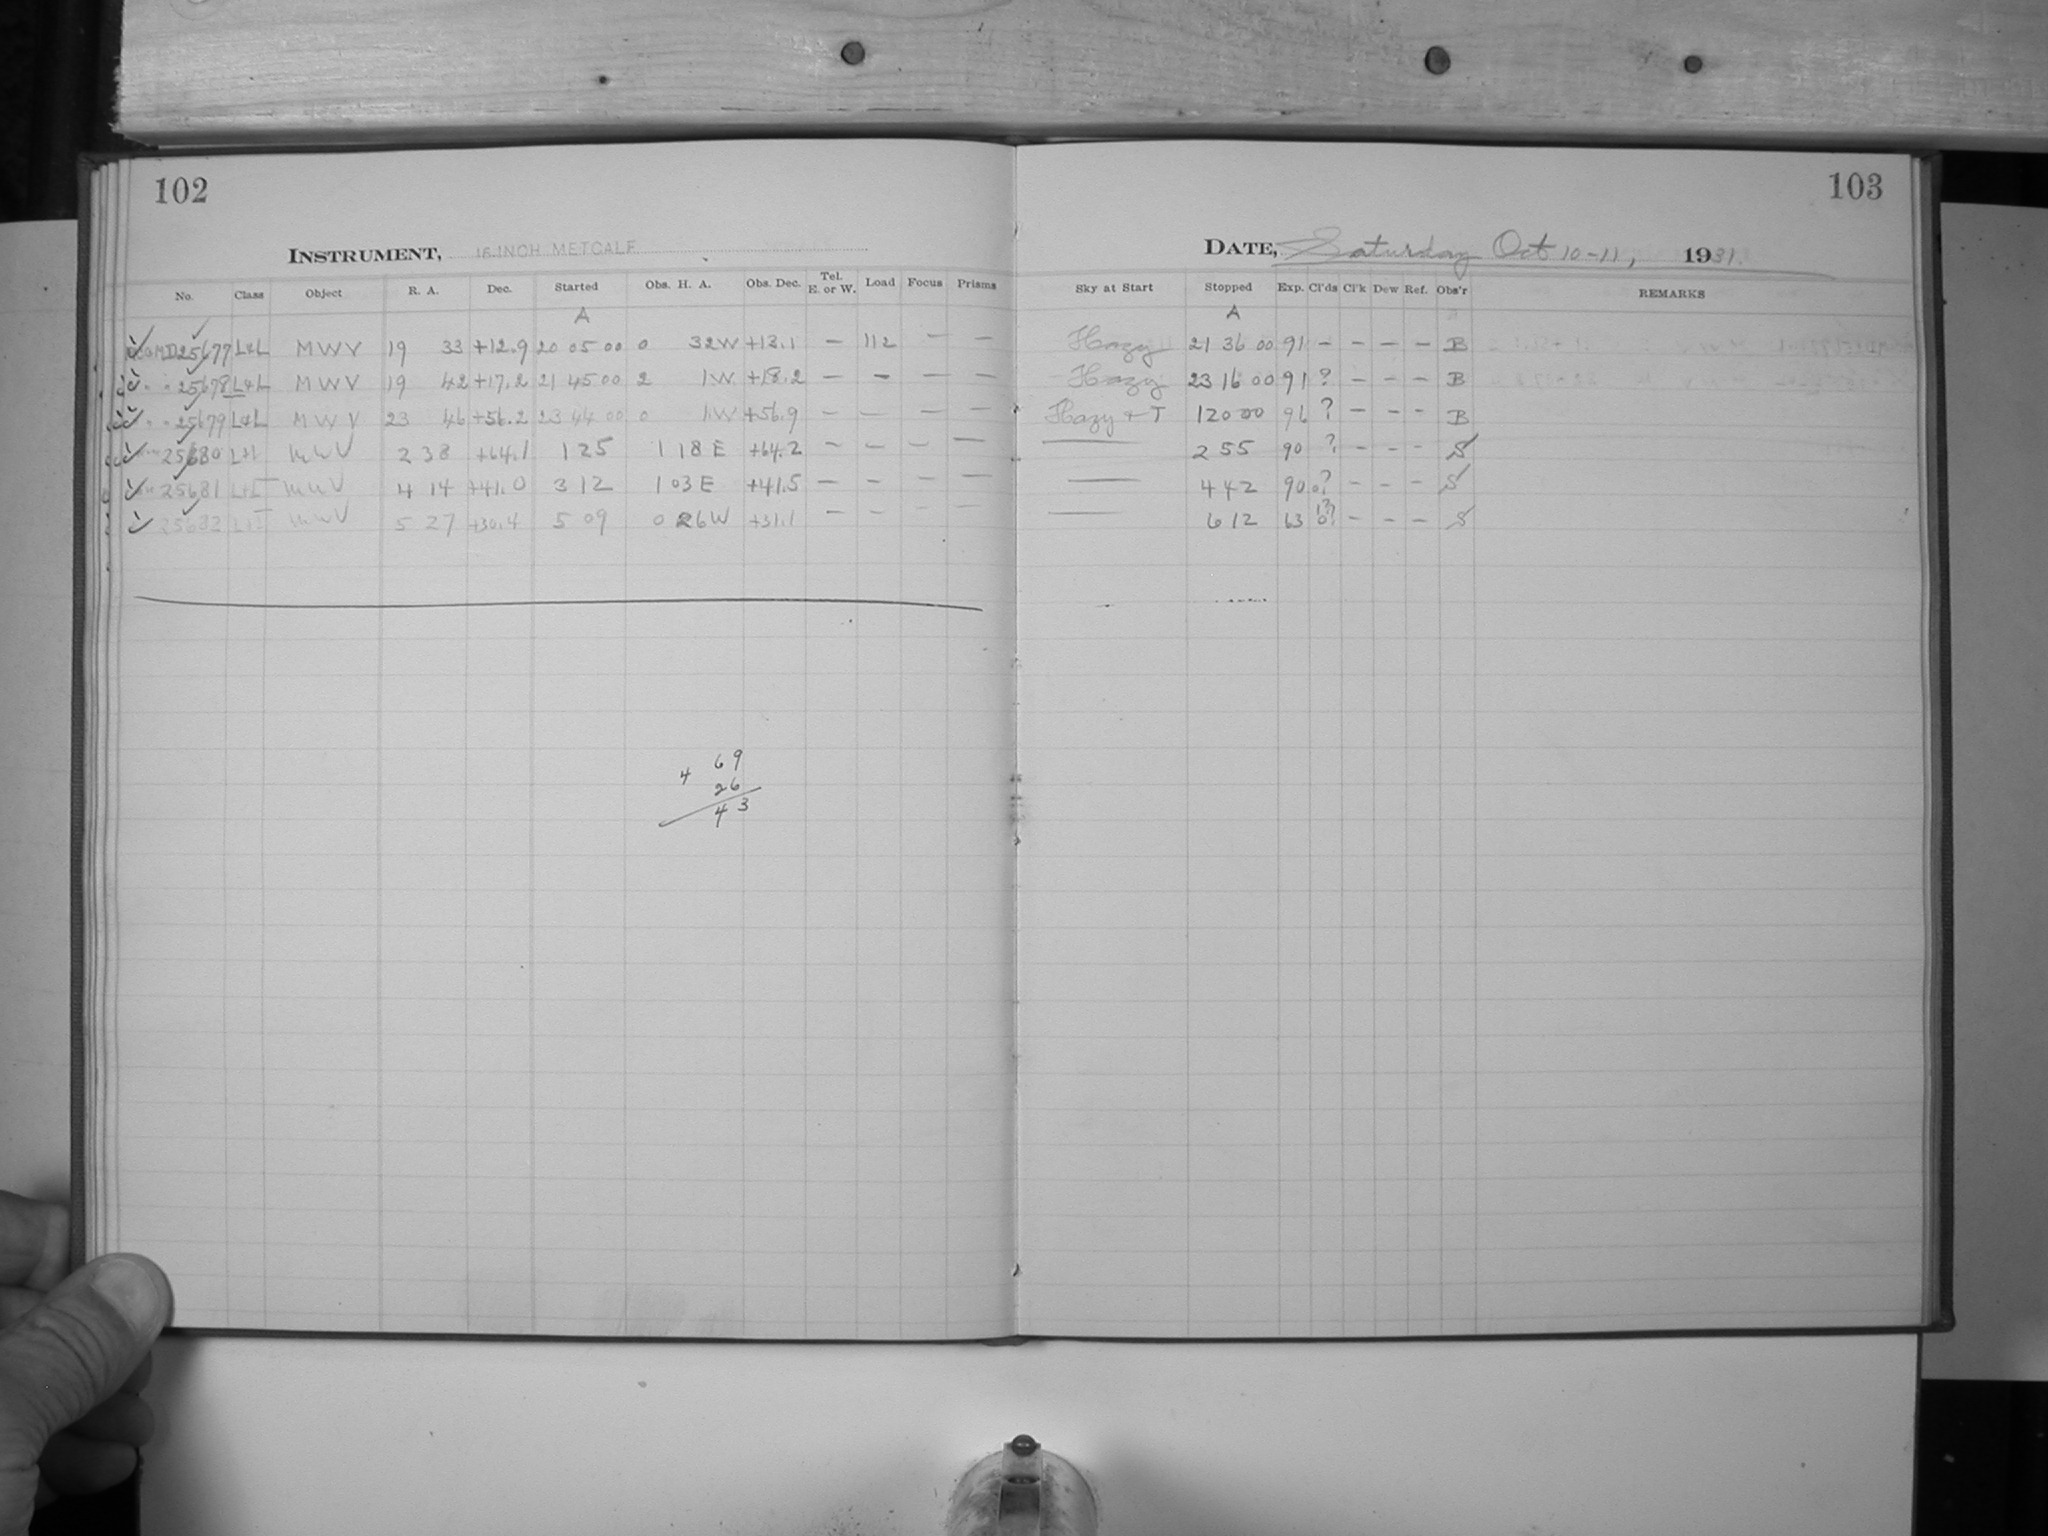 102
INSTRUMENT, 16-INCH METCALF
No. Class Object R. A. Dec. Started Obs. H. A. Obs. Dec. Tel. E. or W. Load Focus Prisms
A
25677 L&L MWV 19 33 +12.9 20 05 00 0 32W +13.1 — 112 — —
" " 25678 L&L MWV 19 42 +17.2 21 45 00 2 1W +18.2 — — — —
" " 25679 L&L MWV 23 46 +56.2 23 44 00 0 1W +56.9 — — — —
25680 L+I MWV 2 38 +64.1 1 25 1 18 E +64.2 — — — —
25681 L+I MWV 4 14 +41.0 3 12 1 03 E +41.5 — — — —
25682 L+I MWV 5 27 +30.4 5 09 0 26W +31.1 — — — —
4 69
26
43
103
DATE, Saturday Oct 10-11, 1931.
Sky at Start Stopped Exp. Cl'ds Cl'k Dew Ref. Obs'r REMARKS
A
Hazy 21 36 00 91 — — — — B
Hazy 23 16 00 91 ? — — — B
Hazy + T 1 20 00 96 ? — — — B
— 2 55 90 ? — — — S
— 4 42 90 0? — — — S
— 6 12 63 — — — S